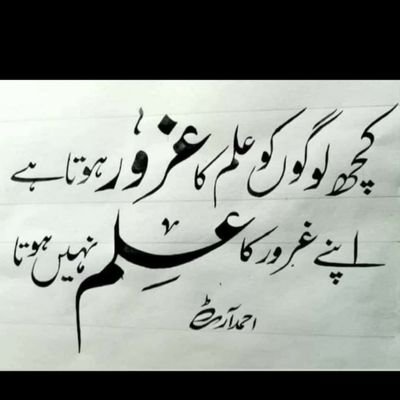 کچھ لوگوں کو علم کا غرور ہوتا ہے
اپنے غرور کا علم نہیں ہوتا
احمد آرٹ